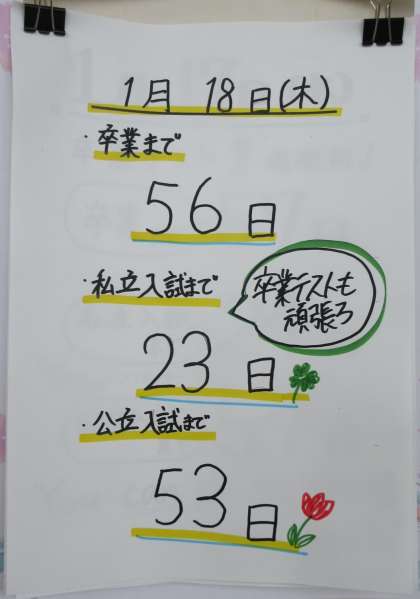 1月 18日(木)
・卒業まで
56日
・私立入試まで
卒業テストも
頑張ろ
23日
・公立入試まで
53日